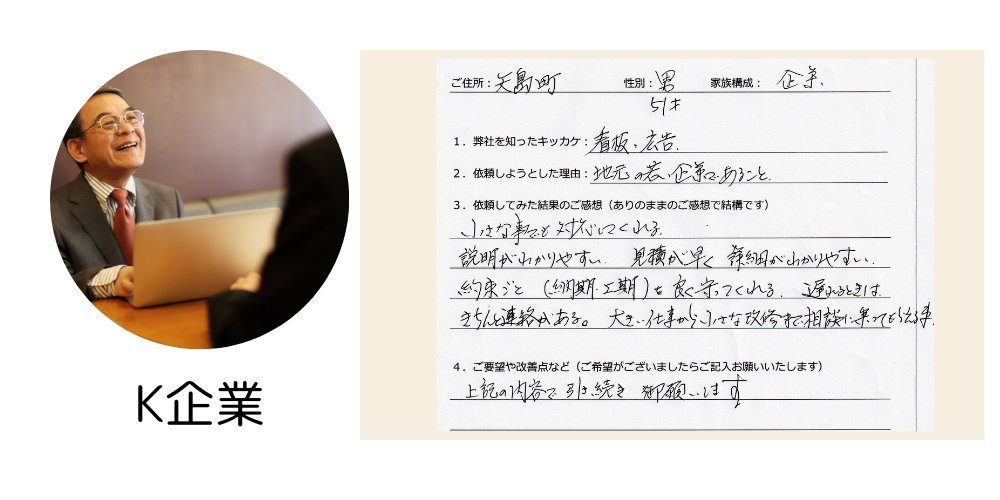 ご住所：矢島町 性別：男 家族構成：企業.
51才
1．弊社を知ったキッカケ：看板、広告.
2．依頼しようとした理由：地元の若い企業であること.
3．依頼してみた結果のご感想（ありのままのご感想で結構です）
小さな事でも対応してくれる.
説明がわかりやすい. 見積が早く 詳細がわかりやすい.
約束ごと（納期 工期）を良く守ってくれる. 遅れるときは
きちんと連絡がある。 大きい仕事から小さな改修まで相談に乗ってもらえる事.
4．ご要望や改善点など（ご希望がございましたらご記入お願いいたします）
上記の内容で引き続き 御願いします
K企業